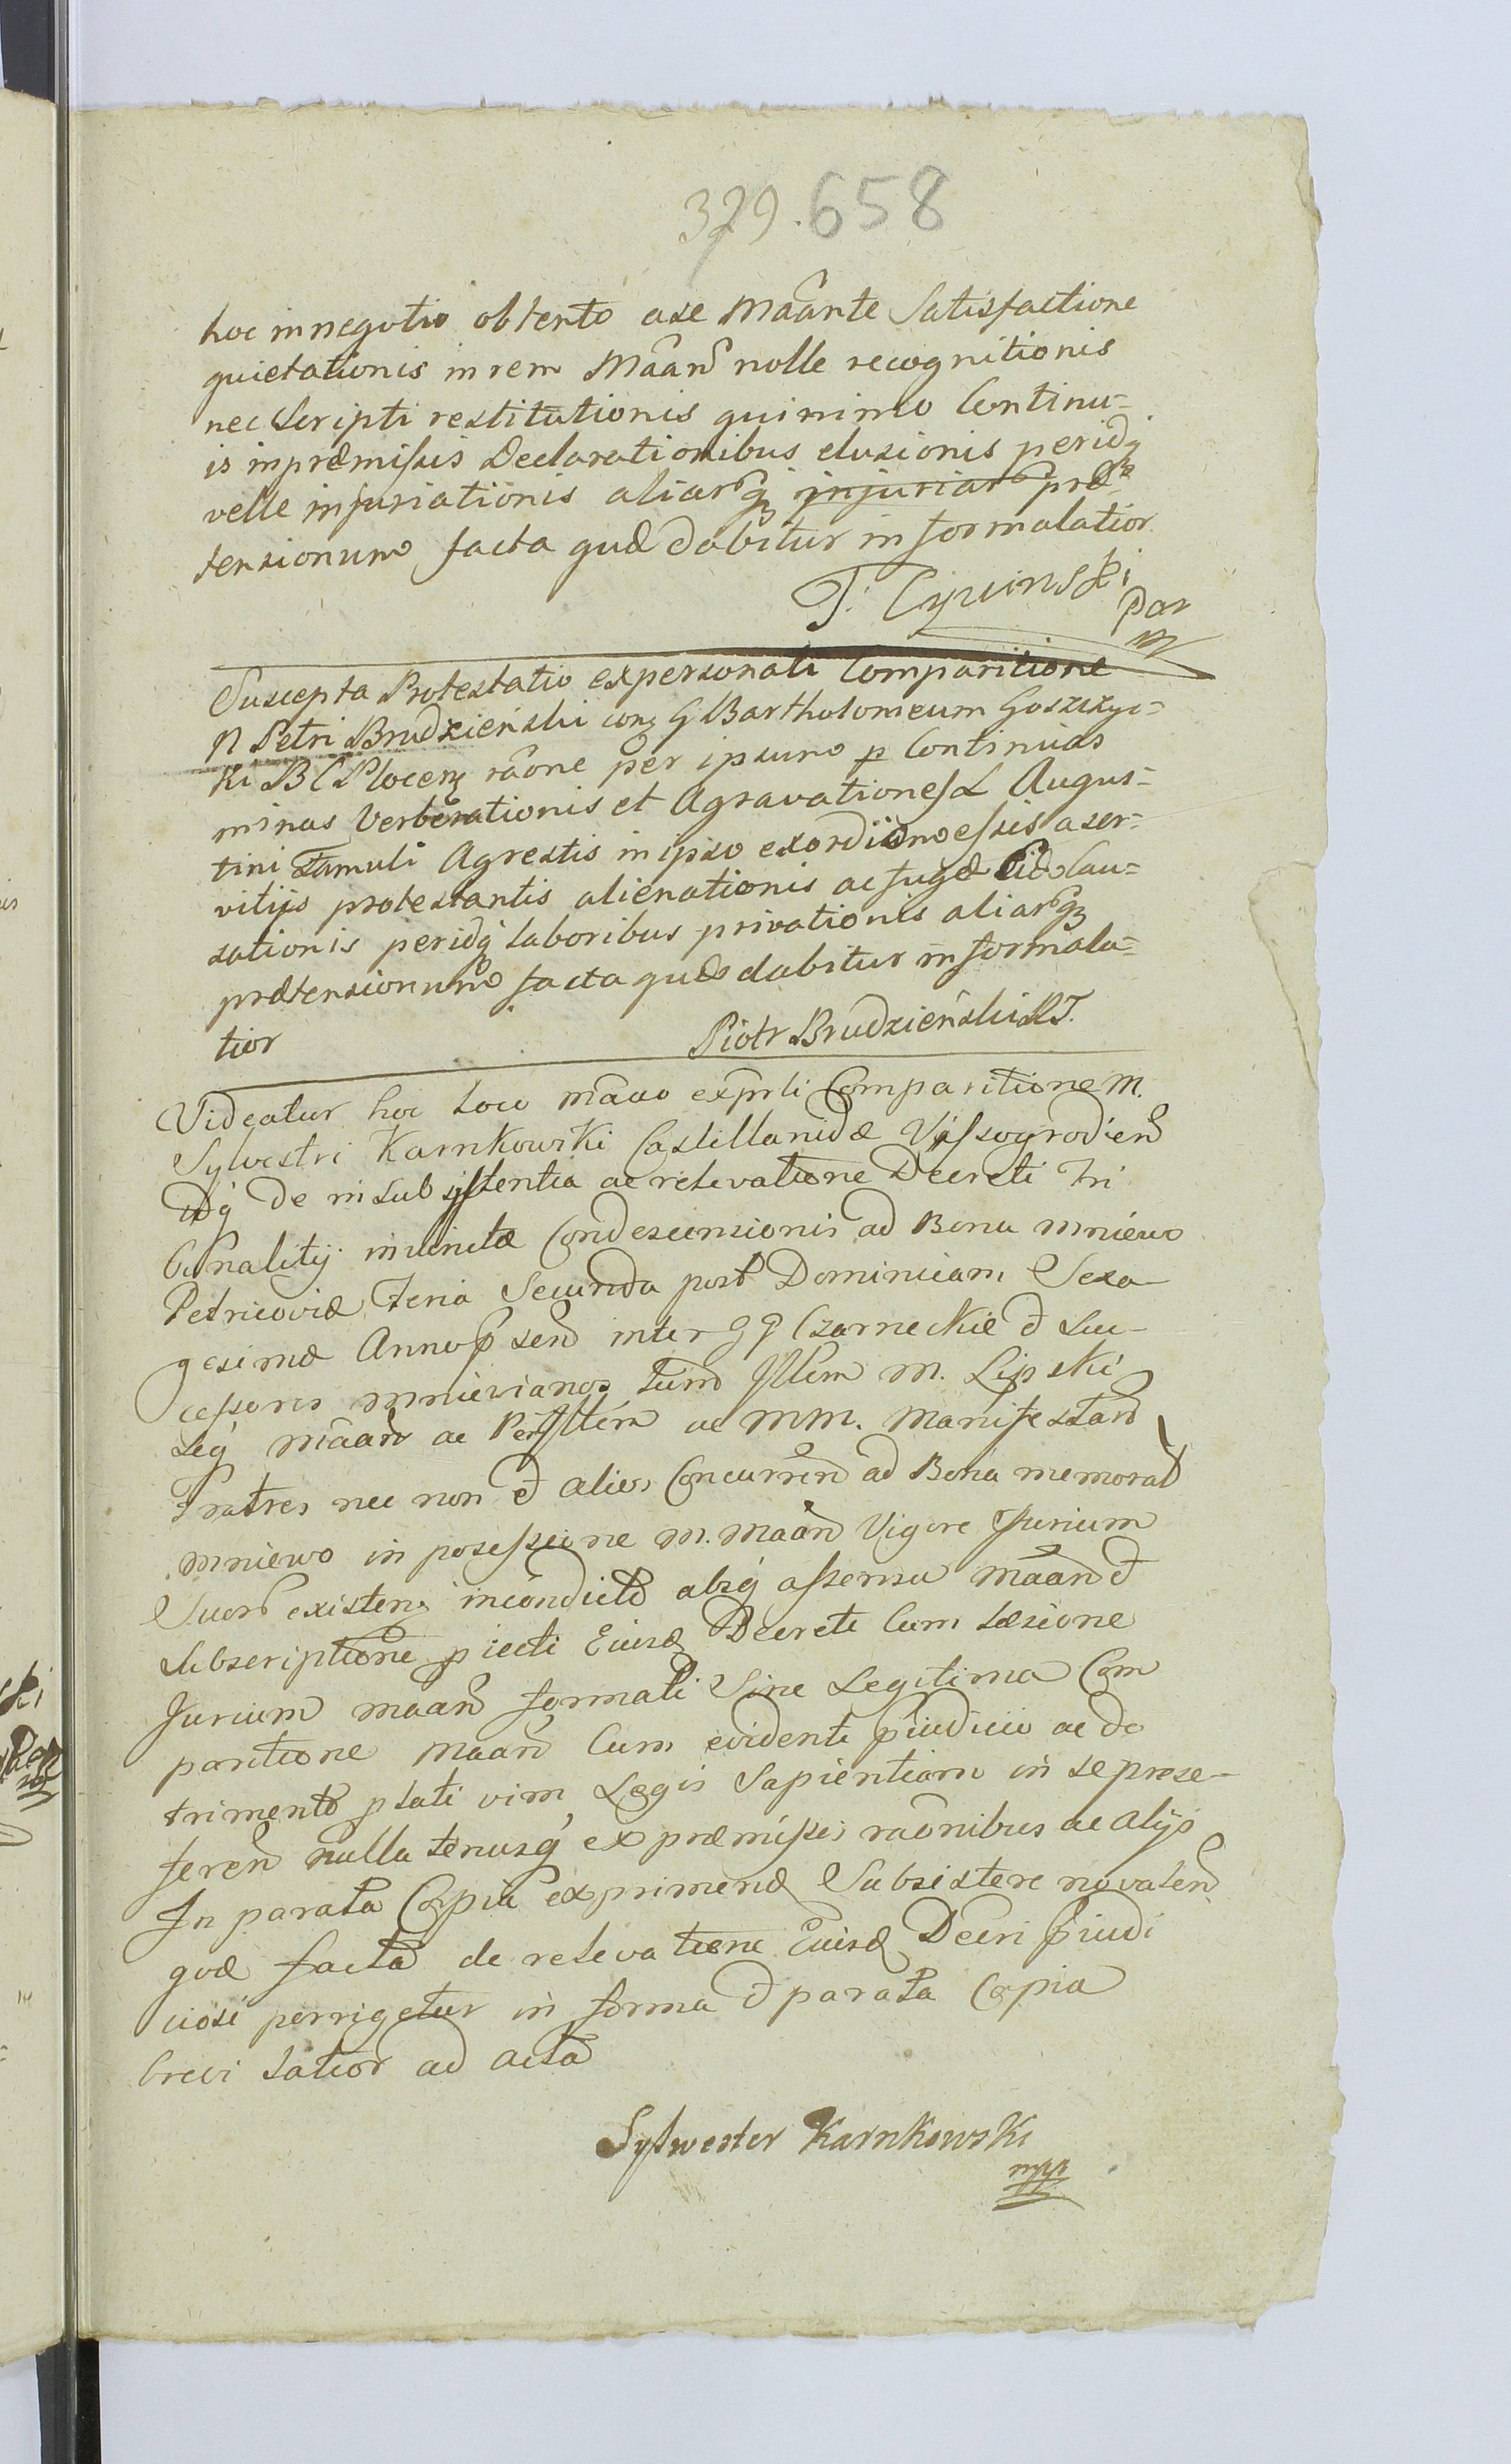 379. 658
hoc in negotio obtento a se Maante Satisfactione
quietationis in rem Maan nolle recognitionis
nec Scripti restitutionis quinimo Continu-
is in præmissis Declarationibus elusionis peridq
velle injuriationis aliarq injuriar præ-
tensionum facta quæ dabitur in forma latior
T. Cywinski
Suscepta Protestatio ex personali Comparitione
N Petri Brudzieński con G Bartholomeum Goszczyc-
ki B C Plocen raone per ipsum p Continuas
minas Verberationis et Agravationes L Augus-
tini Famuli Agrestis in ipso exordio messis a ser-
vitijs protestantis alienationis ac fugæ Eid Cau-
sationis peridq laboribus privationis aliarq
prætensionum facta quæ dabitur in forma la-
tior
Piotr Brudzieński RT.
Videatur hoc loco maao exprli Comparitione M.
Sylvestri Karnkowski Castellanidæ Vyssogrodien
idq de insubsistentia ac relevatione Decreti Tri
bunalitij intuitu Condescensionis ad Bona Mniewo
Petricoviæ Feria Secunda post Dominicam Sexa-
gesimæ Anno p sen inter GG Czarneckie et Suc-
cessores Mniewianos tum Illem M. Lipski
seq Maan ac per Illem ac MM. Manifestan
Fratres nec non et alios Concurren ad Bona memorat
Mniewo in possessione M. Maan Vigore Jurium
Suor existen incondicto absq assensu Maan et
Subscriptione piecti Eiusd Decreti Cum læsione
Jurium maan formati Sine Legitima Com
paritione Maan Cum evidenti piudicio ac de
trimento plati vim Legis Sapientiam in se præse-
feren nulla tenusq ex præmissis raonibus ac alijs
In parata Copia exprimend Subsistere n valen
quæ facta de relevatione Eiusd Decri piudi
ciosi porrigetur in forma et parata Copia
brevi latior ad acta
Sylwester Karnkowski
mpp